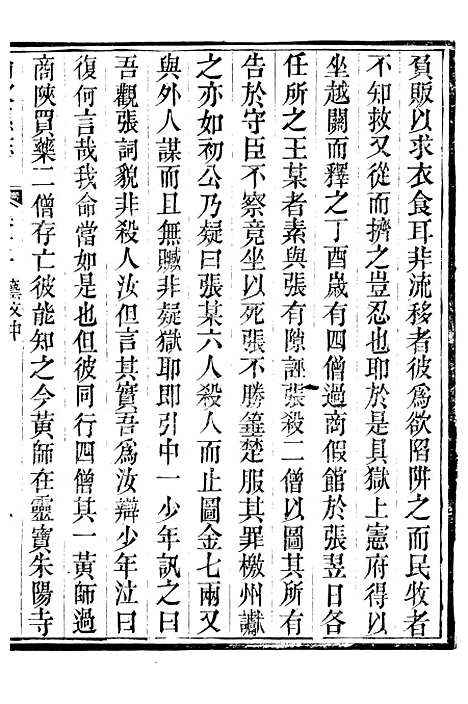 貧販以求衣食耳非流移者彼爲欲陷阱之而民牧者
不知救又從而擠之豈忍也耶於是具獄上憲府得以
坐越關而釋之丁酉歲有四僧過商假館於張翌日各
任所之王某者素與張有隙誣張殺二僧以圖其所有
告於守臣不察竟坐以死張不勝箠楚服其罪檄州讞
之亦如初公乃疑曰張某六人殺人而止圖金七兩又
與外人謀而且無贓非疑獄耶即引中一少年訊之曰
吾觀張詞貌非殺人汝但言其實吾爲汝辯少年泣曰
復何言哉我命當如是也但彼同行四僧其一黃師過
商陜買藥二僧存亡彼能知之今黃師在靈寶朱陽寺
藝文中